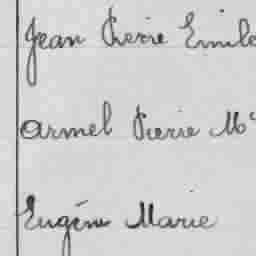 Jean Pierre Emile
Armel Pierre Mie
Eugène Marie